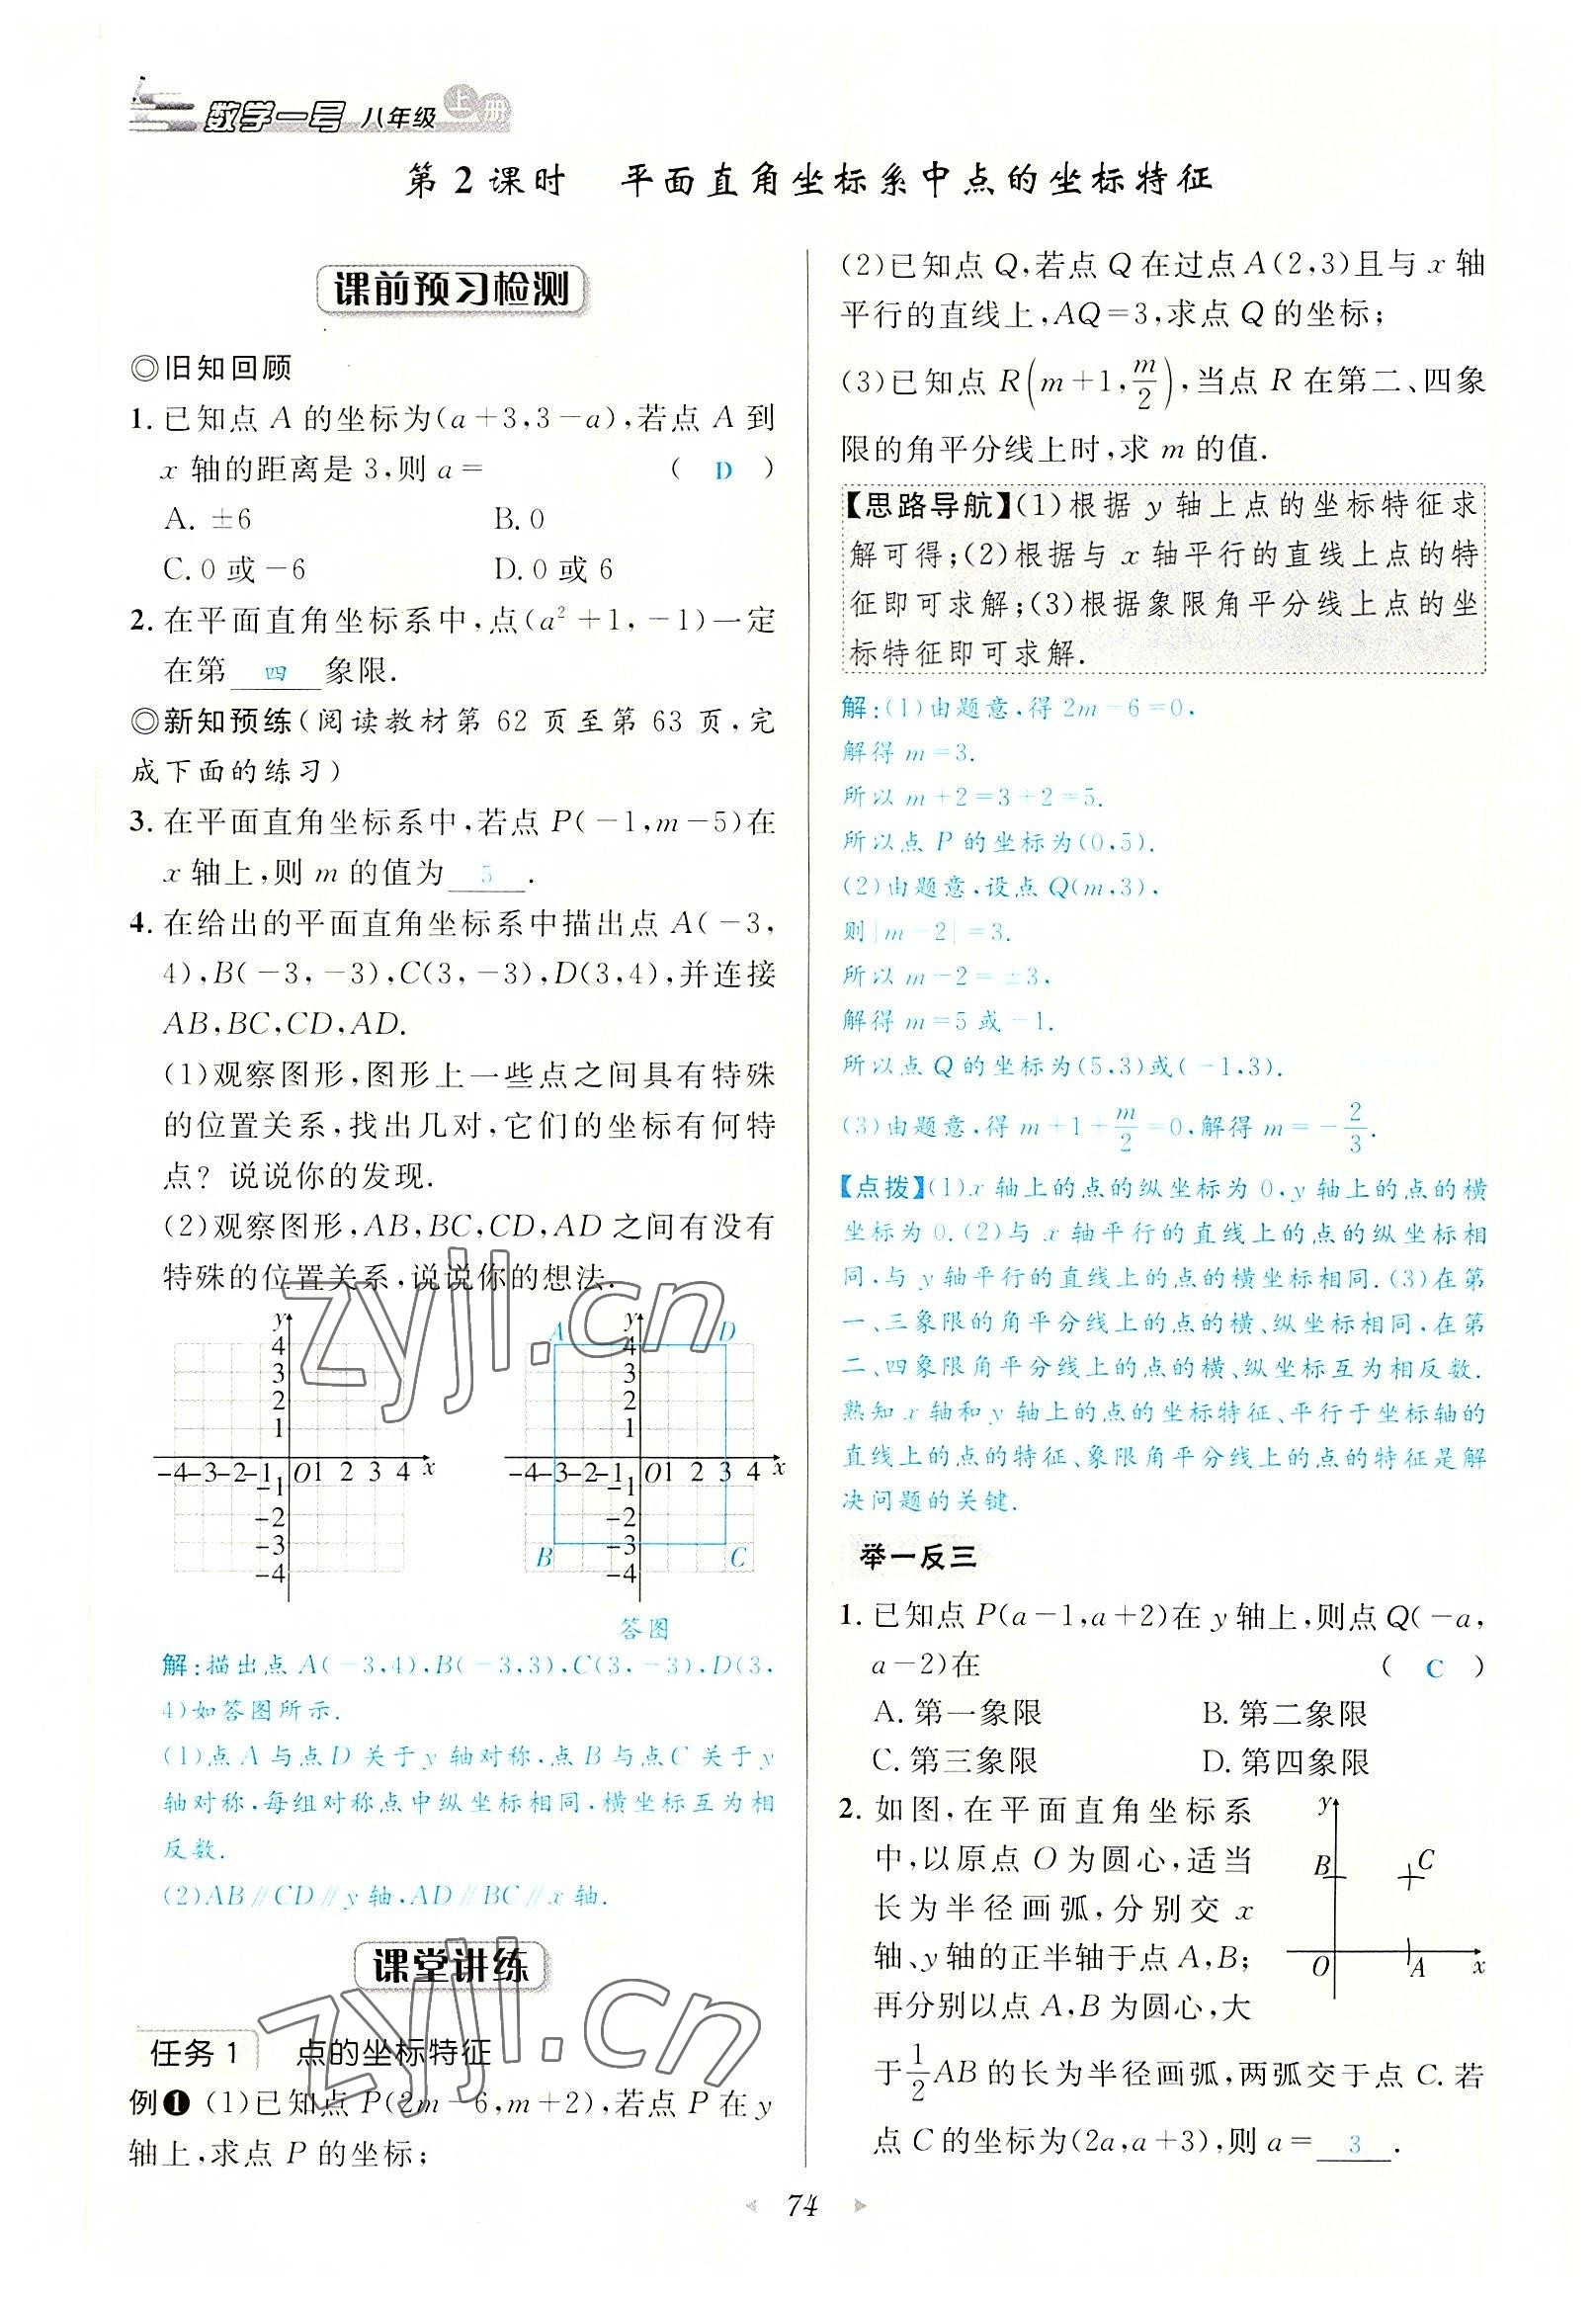 数学一号 八年级 上册
第2课时 平面直角坐标系中点的坐标特征
课前预习检测
◎旧知回顾
1. 已知点 A 的坐标为(a+3,3-a),若点 A 到
x 轴的距离是 3,则 a= ( D )
A. ±6 B. 0
C. 0 或 -6 D. 0 或 6
2. 在平面直角坐标系中,点(a²+1,-1)一定
在第 四 象限.
◎新知预练(阅读教材第 62 页至第 63 页,完
成下面的练习)
3. 在平面直角坐标系中,若点 P(-1,m-5)在
x 轴上,则 m 的值为 5 .
4. 在给出的平面直角坐标系中描出点 A(-3,
4),B(-3,-3),C(3,-3),D(3,4),并连接
AB,BC,CD,AD.
(1)观察图形,图形上一些点之间具有特殊
的位置关系,找出几对,它们的坐标有何特
点? 说说你的发现.
(2)观察图形,AB,BC,CD,AD 之间有没有
特殊的位置关系,说说你的想法.
zyjl.cn
y
4
3
2
1
-4 -3 -2 -1 O 1 2 3 4 x
-1
-2
-3
-4
A y D
4
3
2
1
-4 -3 -2 -1 O 1 2 3 4 x
-1
-2
B -3 C
-4
答图
解:描出点 A(-3,4),B(-3,3),C(3,-3),D(3,
4)如答图所示.
(1)点 A 与点 D 关于 y 轴对称,点 B 与点 C 关于 y
轴对称,每组对称点中纵坐标相同,横坐标互为相
反数.
(2)AB∥CD∥y 轴,AD∥BC∥x 轴.
课堂讲练
zyjl.cn
任务1 点的坐标特征
例❶ (1)已知点 P(2m-6,m+2),若点 P 在 y
轴上,求点 P 的坐标;
(2)已知点 Q,若点 Q 在过点 A(2,3)且与 x 轴
平行的直线上,AQ=3,求点 Q 的坐标;
(3)已知点 R(m+1,m/2),当点 R 在第二、四象
限的角平分线上时,求 m 的值.
【思路导航】(1)根据 y 轴上点的坐标特征求
解可得;(2)根据与 x 轴平行的直线上点的特
征即可求解;(3)根据象限角平分线上点的坐
标特征即可求解.
解:(1)由题意,得 2m-6=0,
解得 m=3.
所以 m+2=3+2=5.
所以点 P 的坐标为(0,5).
(2)由题意,设点 Q(m,3),
则|m-2|=3.
所以 m-2=±3,
解得 m=5 或 -1.
所以点 Q 的坐标为(5,3)或(-1,3).
(3)由题意,得 m+1+m/2=0,解得 m=-2/3.
【点拨】(1)x 轴上的点的纵坐标为 0,y 轴上的点的横
坐标为 0.(2)与 x 轴平行的直线上的点的纵坐标相
同,与 y 轴平行的直线上的点的横坐标相同.(3)在第
一、三象限的角平分线上的点的横、纵坐标相同,在第
二、四象限角平分线上的点的横、纵坐标互为相反数.
熟知 x 轴和 y 轴上的点的坐标特征、平行于坐标轴的
直线上的点的特征、象限角平分线上的点的特征是解
决问题的关键.
举一反三
1. 已知点 P(a-1,a+2)在 y 轴上,则点 Q(-a,
a-2)在 ( C )
A. 第一象限 B. 第二象限
C. 第三象限 D. 第四象限
2. 如图,在平面直角坐标系
中,以原点 O 为圆心,适当
长为半径画弧,分别交 x
轴、y 轴的正半轴于点 A,B;
再分别以点 A,B 为圆心,大
于 1/2 AB 的长为半径画弧,两弧交于点 C. 若
点 C 的坐标为(2a,a+3),则 a= 3 .
y
B C
O A x
74